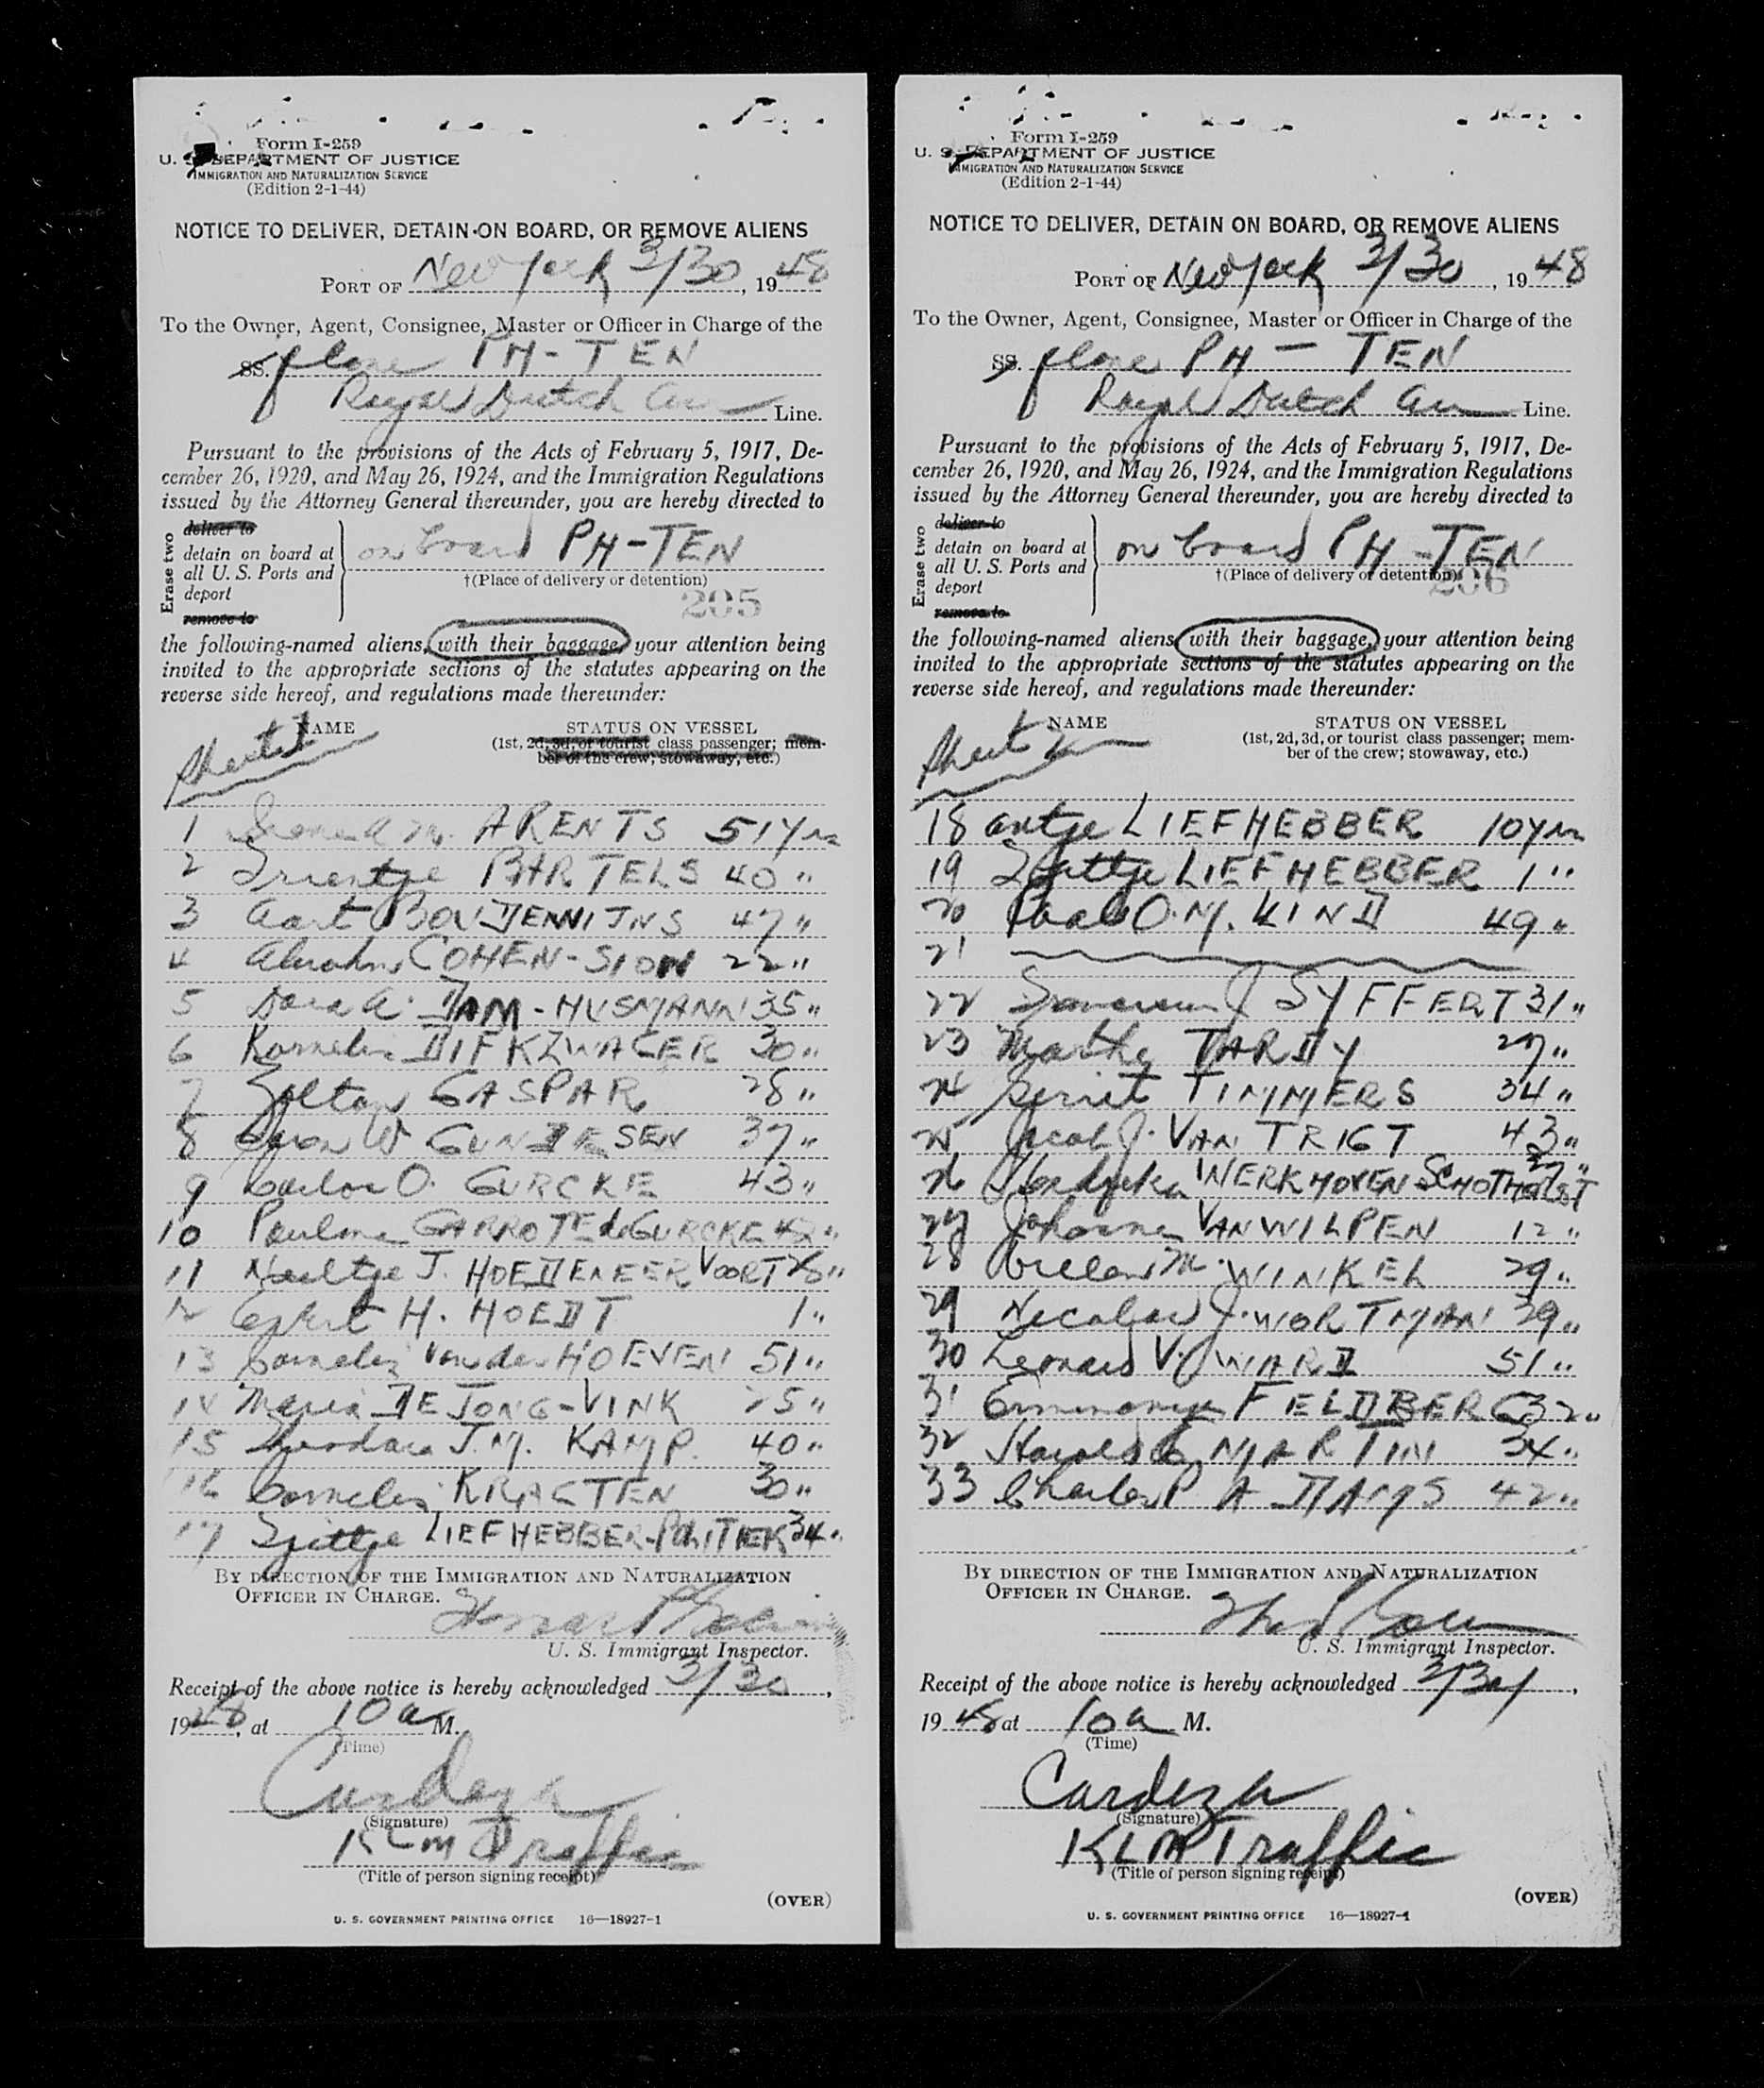 Form I-259
U. S. DEPARTMENT OF JUSTICE
IMMIGRATION AND NATURALIZATION SERVICE
(Edition 2-1-44)
NOTICE TO DELIVER, DETAIN ON BOARD, OR REMOVE ALIENS
PORT OF New York 3/30, 1948
To the Owner, Agent, Consignee, Master or Officer in Charge of the
SS. plane PH-TEN
Royal Dutch Air Line.
Pursuant to the provisions of the Acts of February 5, 1917, De-
cember 26, 1920, and May 26, 1924, and the Immigration Regulations
issued by the Attorney General thereunder, you are hereby directed to
Erase two
deliver to
detain on board at
all U. S. Ports and
deport
remove to
on board PH-TEN
†(Place of delivery or detention)
205
the following-named aliens, with their baggage, your attention being
invited to the appropriate sections of the statutes appearing on the
reverse side hereof, and regulations made thereunder:
Sheet 1
NAME
STATUS ON VESSEL
(1st, 2d, 3d, or tourist class passenger; mem-
ber of the crew; stowaway, etc.)
1 ARENTS 51 yrs
2 BARTELS 40 "
3 Aart BOUDEWIJNS 47 "
4 COHEN-SION 22 "
5 DAM-HUSMANN 35 "
6 Kornelis 30 "
7 Zoltan GASPAR 28 "
8 GUNDESEN 37 "
9 Carlos O. GURCKE 43 "
10 GARROTE de GURCKE
11 Neeltje J. "
12 H. HOEDT 1 "
13 Cornelis van der HOEVEN 51 "
14 Maria DE JONG-VINK 25 "
15 Theodora J.M. KAMP. 40 "
16 Cornelis KRACTEN 30 "
17 Sjittje LIEFHEBBER-POLITIEK 34 "
BY DIRECTION OF THE IMMIGRATION AND NATURALIZATION
OFFICER IN CHARGE.
U. S. Immigrant Inspector.
Receipt of the above notice is hereby acknowledged 3/30,
1948, at 10 a M.
(Time)
Cardeza
(Signature)
KLM Traffic
(Title of person signing receipt)
(OVER)
U. S. GOVERNMENT PRINTING OFFICE 16—18927-1
Form I-259
U. S. DEPARTMENT OF JUSTICE
IMMIGRATION AND NATURALIZATION SERVICE
(Edition 2-1-44)
NOTICE TO DELIVER, DETAIN ON BOARD, OR REMOVE ALIENS
PORT OF New York 3/30, 1948
To the Owner, Agent, Consignee, Master or Officer in Charge of the
SS. plane PH-TEN
Royal Dutch Air Line.
Pursuant to the provisions of the Acts of February 5, 1917, De-
cember 26, 1920, and May 26, 1924, and the Immigration Regulations
issued by the Attorney General thereunder, you are hereby directed to
Erase two
deliver to
detain on board at
all U. S. Ports and
deport
remove to
on board PH-TEN
†(Place of delivery or detention)
206
the following-named aliens, with their baggage, your attention being
invited to the appropriate sections of the statutes appearing on the
reverse side hereof, and regulations made thereunder:
Sheet 2
NAME
STATUS ON VESSEL
(1st, 2d, 3d, or tourist class passenger; mem-
ber of the crew; stowaway, etc.)
18 Antje LIEFHEBBER 10 yrs
19 LIEFHEBBER 1 "
20 O.M. KIND 49 "
21
22 SYFFERT 31 "
23 Martha TARDY "
24 Gerrit TIMMERS 34 "
25 Jacob J. VAN TRIGT 43 "
26 WERKHOVEN SCHOTHORST 27 "
27 VAN WILPEN 12 "
28 Willem M. WINKEL 29 "
29 Nicolaas J. WORTMAN 39 "
30 Leonard V. WARD 51 "
31 FELDBERG 32 "
32 Harold MARTIN 34 "
33 Charles P ADAMS 42 "
BY DIRECTION OF THE IMMIGRATION AND NATURALIZATION
OFFICER IN CHARGE.
U. S. Immigrant Inspector.
Receipt of the above notice is hereby acknowledged 3/30/,
1948 at 10 a M.
(Time)
Cardeza
(Signature)
KLM Traffic
(Title of person signing receipt)
(OVER)
U. S. GOVERNMENT PRINTING OFFICE 16—18927-1